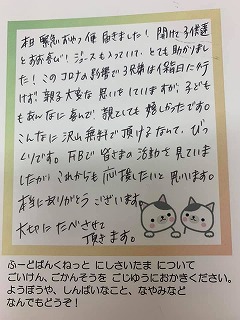 緊急おやつ便 届きました！ 開けて子供達
とお喜び！ ジュースも入っていて、とても助かりまし
た！ このコロナの影響で3兄弟は 行
けず。親子大変な思いをしていますが、子ども
もあんなに喜んで、親としても嬉しかったです。
こんなに沢山無料で頂けるなんて、びっ
くりです。FBで皆さまの活動を見ていま
したが、これからも応援したいと思います。
本当にありがとうございます。
大切にたべさせて
頂きます。
ふーどばんくねっと にしさいたま について
ごいけん、ごかんそうを ごじゆうにおかきください。
ようぼうや、しんぱいなこと、なやみなど
なんでもどうぞ！